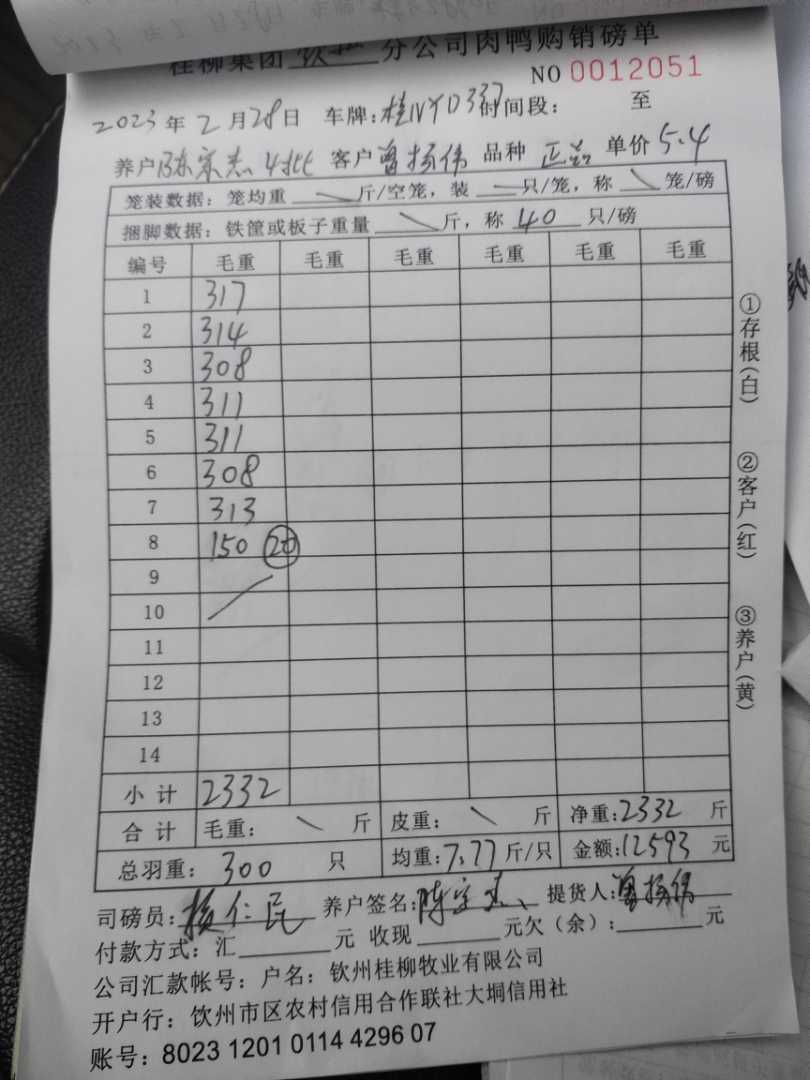 桂柳集团 钦州 分公司肉鸭购销磅单
NO 0012051
2023年2月28日 车牌:桂NYD337 时间段: 至
养户 陈宗杰 4批 客户 曾扬伟 品种 正品 单价 5.4
笼装数据:笼均重 \ 斤/空笼,装 — 只/笼,称 \ 笼/磅
捆脚数据:铁筐或板子重量 \ 斤,称 40 只/磅
编号 毛重 毛重 毛重 毛重 毛重 毛重
1 317
2 314
3 308
4 311
5 311
6 308
7 313
8 150 20
9
10
11
12
13
14
小计 2332
合计 毛重: \ 斤 皮重: \ 斤 净重:2332 斤
总羽重: 300 只 均重:7.77 斤/只 金额:12593 元
司磅员: 仁民 养户签名:陈宗杰 提货人:曾扬伟
付款方式:汇 元 收现 元欠(余): 元
公司汇款帐号:户名:钦州桂柳牧业有限公司
开户行:钦州市区农村信用合作联社大垌信用社
账号:8023 1201 0114 4296 07
①存根(白)
②客户(红)
③养户(黄)